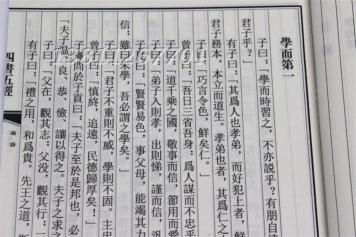 學而第一
子曰：「學而時習之，不亦説乎？有朋自遠
君子乎？」
有子曰：「其爲人也孝弟，而好犯上者，鮮
君子務本，本立而道生。孝弟也者，其爲仁之
子曰：「巧言令色，鮮矣仁。」
曾子曰：「吾日三省吾身：爲人謀而不忠乎
子曰：「道千乘之國，敬事而信，節用而愛
子曰：「弟子入則孝，出則悌，謹而信，汎
子夏曰：「賢賢易色，事父母，能竭其力
信；雖曰不學，吾必謂之學矣。」
子曰：「君子不重則不威，學則不固。主忠
曾子曰：「慎終，追遠，民德歸厚矣！」
子禽問於子貢曰：「夫子至於是邦也，必
「夫子温、良、恭、儉、讓以得之。夫子之求之
子曰：「父在，觀其志；父没，觀其行；三
有子曰：「禮之用，和爲貴。先王之道，斯
四書五經
論語